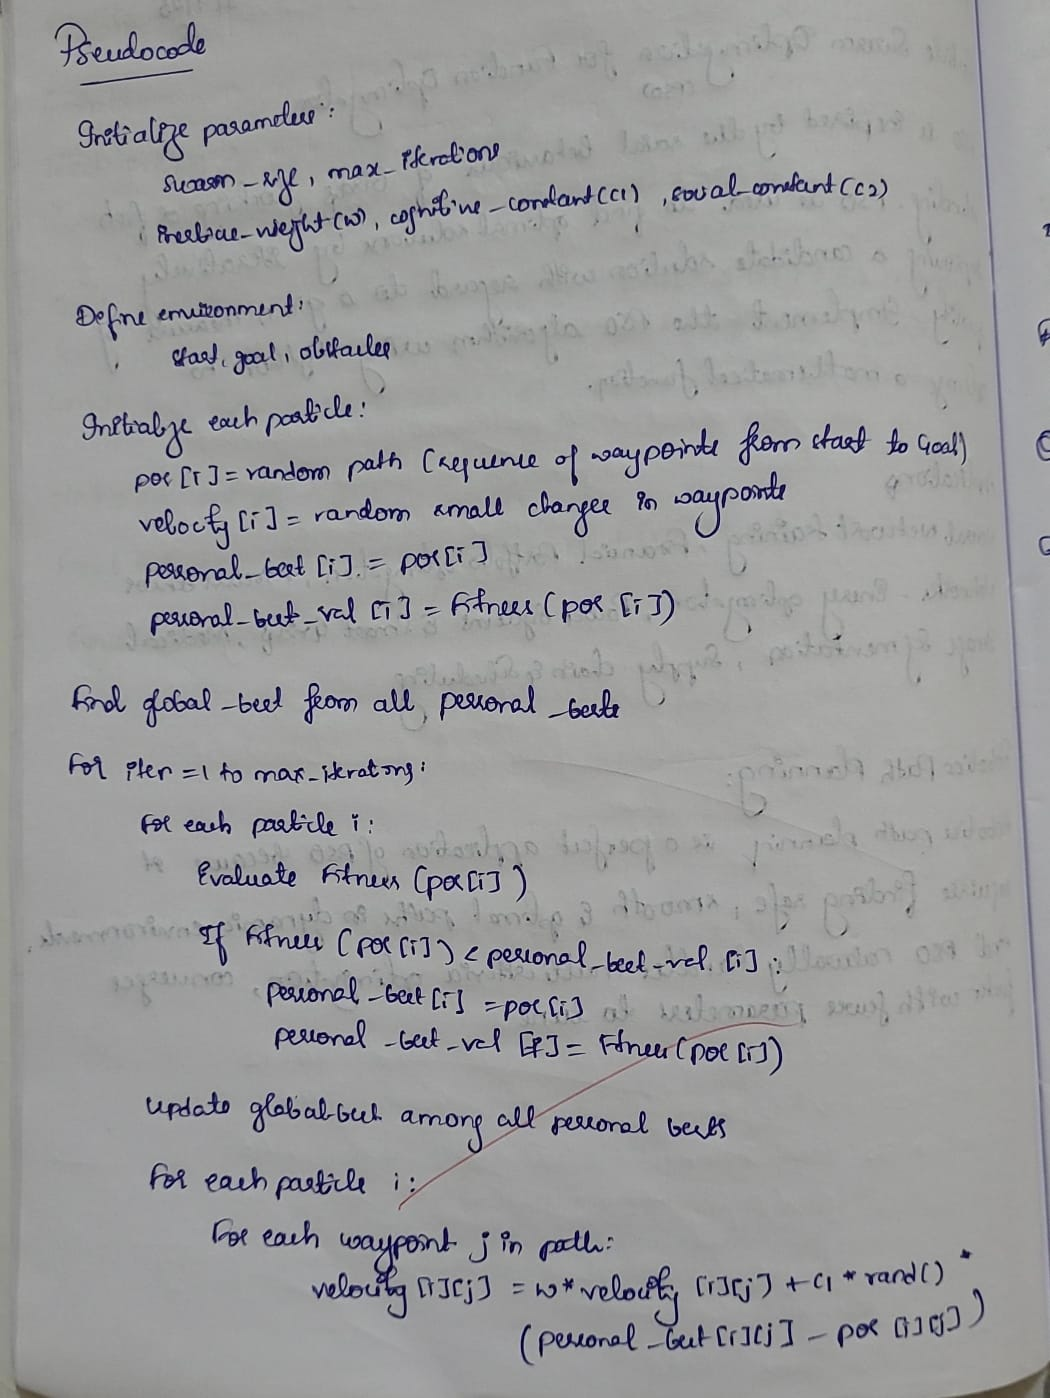 Pseudocode
Initialize parameters:
swarm_size, max_iterations
inertiae_weight(w), cognitive_constant(c1), social_constant(c2)
Define environment:
start, goal, obstacles
Initialize each particle:
pos[i] = random path (sequence of waypoints from start to Goal)
velocity[i] = random small changes in waypoints
personal_best[i] = pos[i]
personal_best_val[i] = Fitness(pos[i])
Find global_best from all personal_bests
For iter = 1 to max_iterations:
For each particle i:
Evaluate Fitness(pos[i])
If Fitness(pos[i]) < personal_best_val[i]:
personal_best[i] = pos[i]
personal_best_val[i] = Fitness(pos[i])
Update global_best among all personal bests
For each particle i:
For each waypoint j in path:
velocity[i][j] = w*velocity[i][j] + c1 * rand() *
(personal_best[i][j] - pos[i][j])